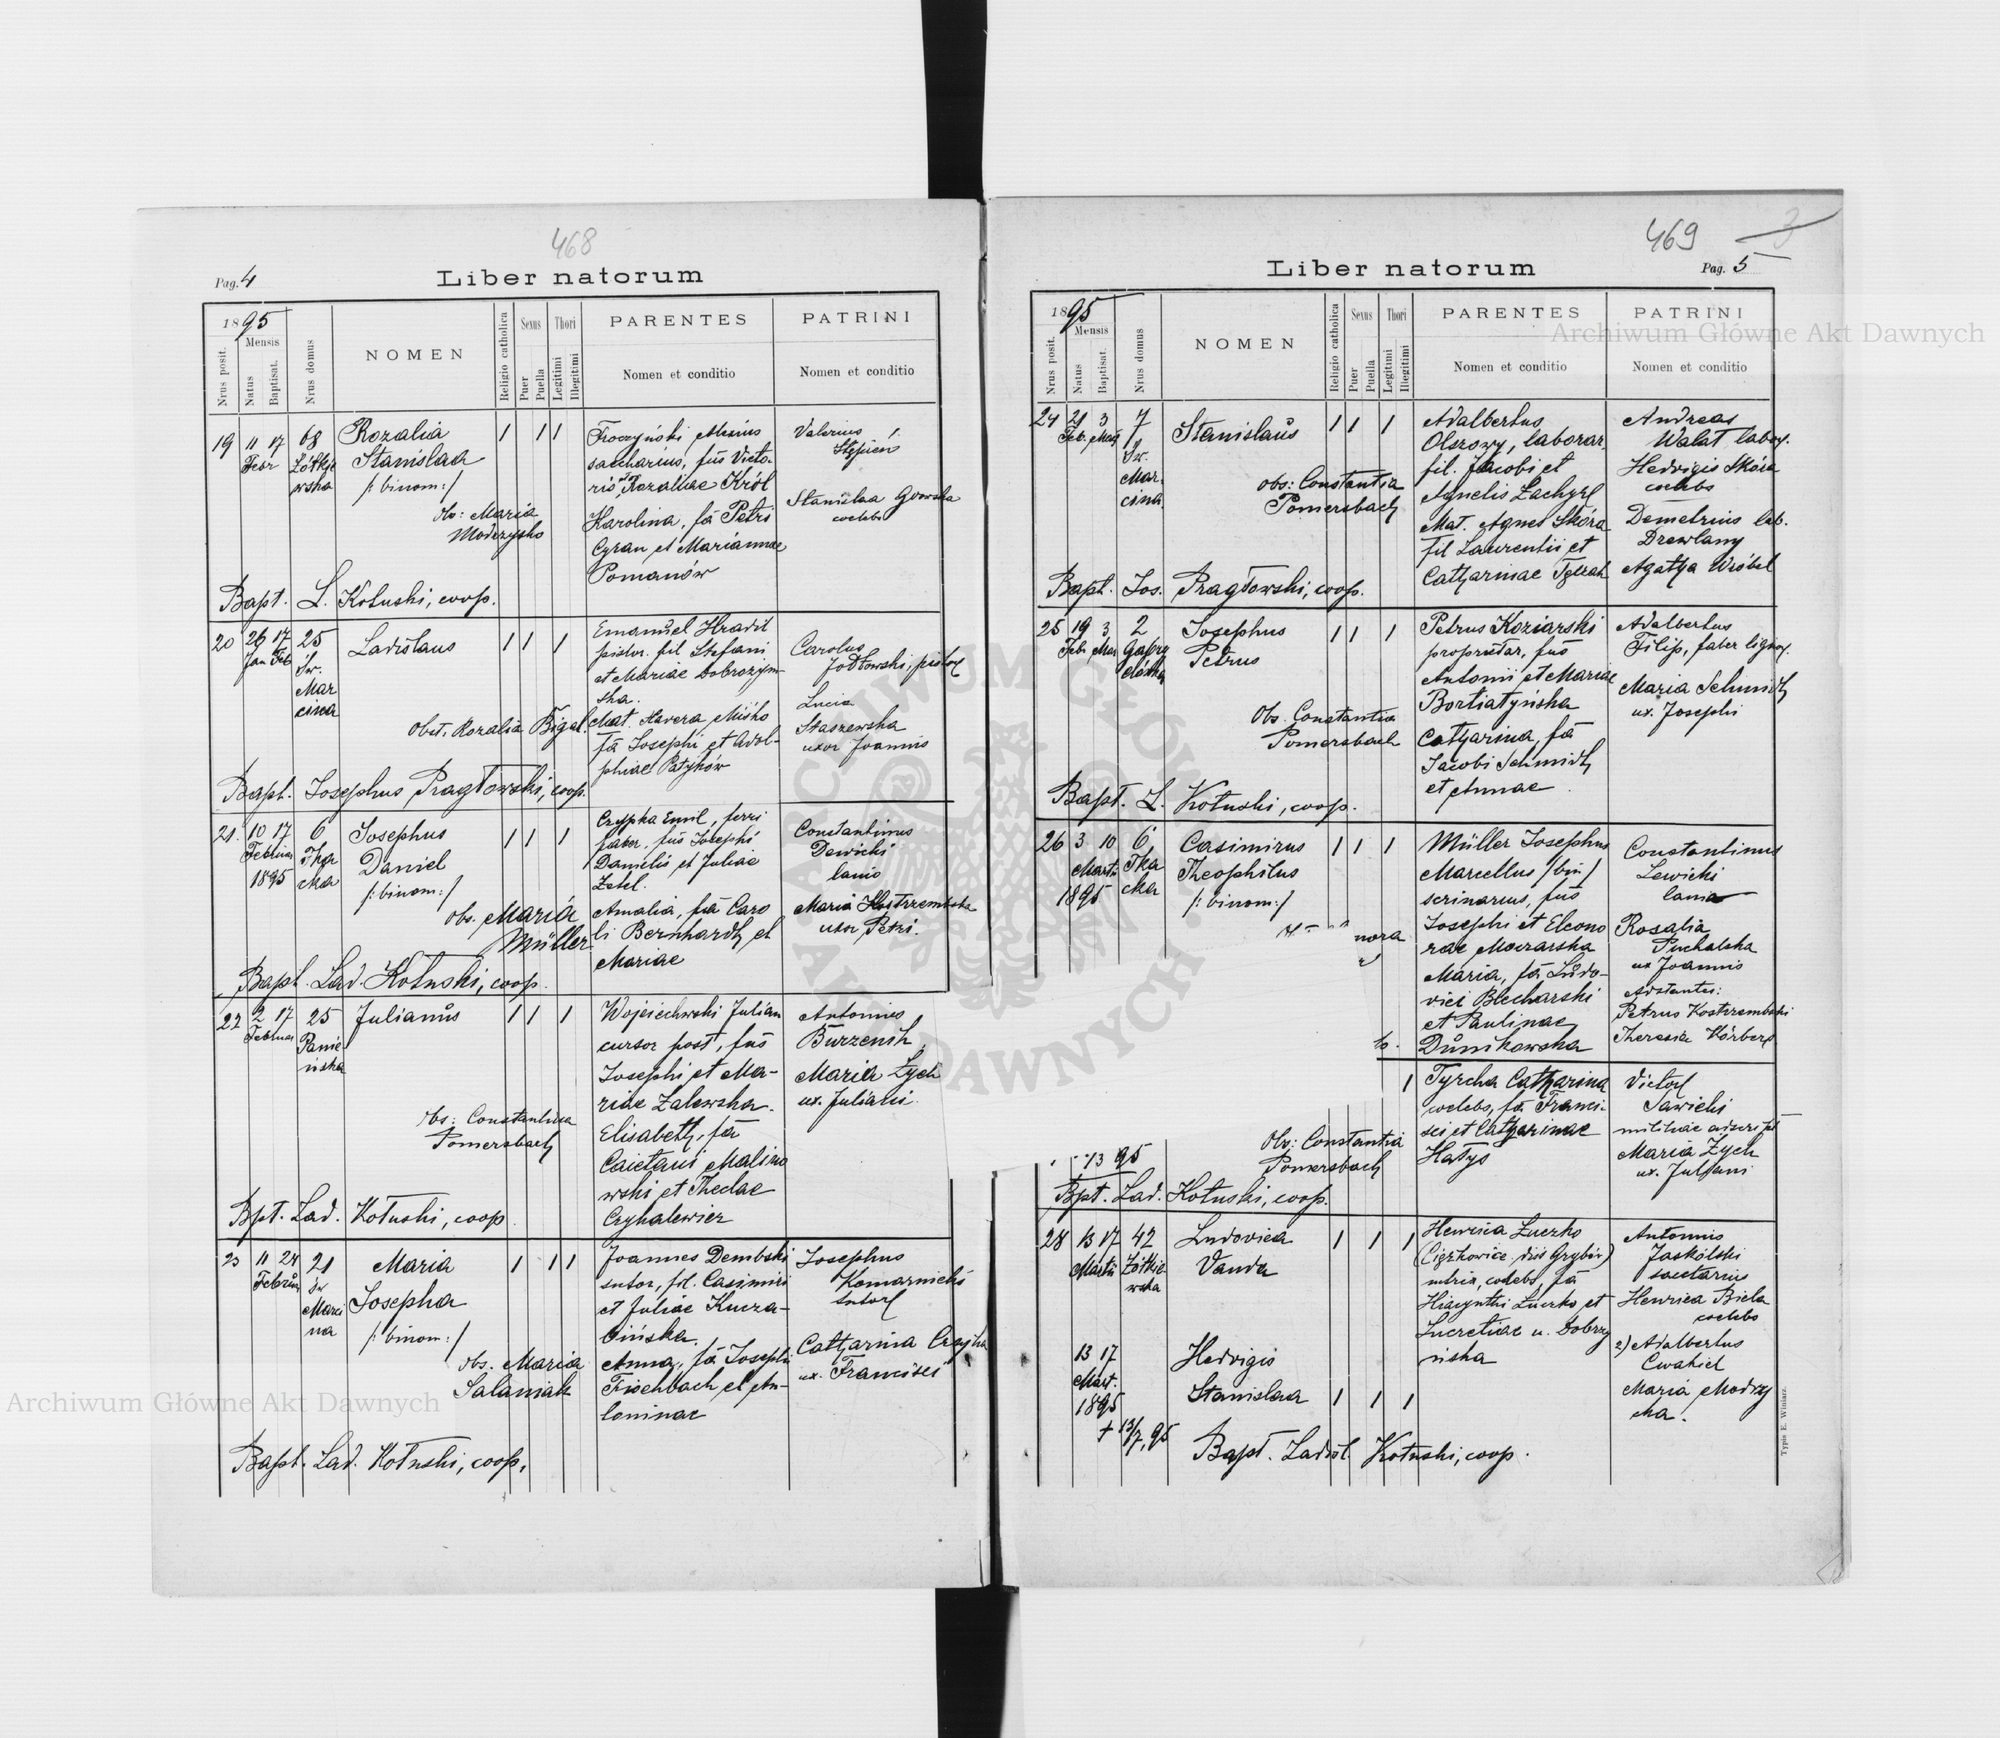 468
Pag. 4
Liber natorum
1895
Mensis
Nrus posit.
Natus
Baptisat.
Nrus domus
NOMEN
Religio catholica
Sexus
Puer
Puella
Thori
Legitimi
Illegitimi
PARENTES
Nomen et conditio
PATRINI
Nomen et conditio
19 11 17 68 Rozalia 1 1 1
Febr Żółkje
wska
Stanislaa
/: binom:/
Obs: Maria
Modrzysko
saccharius, fús Victo-
ris et Rozaliae Król
Karolina, fá Petri
Cyran et Mariannae
Pomanów
Valerius
Stępień
Stanislaa
coelebs
Bapt. L. Kotuski, coop.
20 26 17 25 Ladislaus 1 1 1
Jan Feb Św.
Mar
cina
Obst. Rozalia Bigal.
Emanuel Hradil
pistor. fil Stefani
et Mariae Dobrozym-
ska.
Mat. Xavera Misko
fá Josephi et Adol-
phiae Patyków
Carolus
Jodłowski, pistor
Lucia
Staszewska
uxor Joannis
Bapt. Josephus Pragłowski, coop.
21. 10 17 6 Josephus 1 1 1
Februar Tka
1895 cka
Daniel
/: binom:/
Obs. Maria
Müller
Czypka Emil, ferri
faber, fús Josephi
Danielis et Juliae
Amalia, fá Caro
li Bernhardt et
Mariae
Constantinus
Dewicki
lanio
Maria Kostrzembska
uxor Petri.
Bapt. Lad. Kotuski, coop.
22 2 17 25 Julianus 1 1 1
Februar Panie
ńska
Obs: Constantina
Pomersbach
Wojciechwski Julian
cursor post, fús
Josephi et Ma-
riae Zalewska.
Elisabeth, fá
Caietani Malino
wski et Theclae
Czyhalewicz
Antonius
Burzenik
Maria Zych
ux. Juliani.
Bpt. Lad. Kotuski, coop
23 11 24 21 Maria 1 1 1
Februar św
Marci
na
Josepha
/: binom:/
Obs. Maria
Salamiak
Joannes Dembski
sutor, fil. Casimiri
et Juliae Kucza-
bińska.
Anna, fá Josephi
Fischbach et An-
toninae
Josephus
Komarnicki
sutor
Catharina
ux. Francisci
Bapt. Lad. Kotuski, coop.
469 3
Liber natorum
Pag. 5
1895
Mensis
Nrus posit.
Natus
Baptisat.
Nrus domus
NOMEN
Religio catholica
Sexus
Puer
Puella
Thori
Legitimi
Illegitimi
PARENTES
Nomen et conditio
PATRINI
Nomen et conditio
24 21 3 7 Stanislaus 1 1 1
Feb. Mar. Św.
Mar
cina.
obs: Constantia
Pomersbach
Adalbertus
Olszowy, laborar.
fil. Jacobi et
Agnelis
Mat. Agnes Skóra
fil Laurentii et
Catharinae
Andreas
Walat labor.
Hedvigis Skóra
coelebs
Demetrius lab.
Drewlany
Agatha Wróbel
Bapt. Jos. Pragłowski, coop.
25 19 3 2 Josephus 1 1 1
Petrus
Obs. Constantia
Pomersbach
Petrus Koziarski
proprietar, fús
Antonii et Mariae
Bortiatyńska
Catharina, fá
Jacobi Schmidt
et Annae
Adalbertus
Filip, faber lignar.
Maria Schmidt
ux. Josephi
Bapt. L. Kotuski, coop.
26 3 10 6 Casimirus 1 1 1
Martii Tka
1895 cka
Theophilus
/: binom:/
nora
Müller Josephus
Marcellus /bin/
scrinarius, fús
Josephi et Eleono
rae Moczarska
Maria, fá Ludo-
vici Blecharski
et Paulinae
Dunikowska
Constantinus
Lewicki
lanio
Rosalia
Puchalska
ux Joannis
Adstantes:
Petrus Kostrzembski
Theresia Körber
1
13 95
Obs: Constantia
Pomersbach
Tyrcha Catharina
coelebs, fá Franci-
sci et Catharinae
Hatys
Victor
Sawicki
Maria Zych
ux. Juliani
Bpt. Lad. Kotuski, coop.
28 13 17 42 Ludovica 1 1 1
Martii Żółkie-
wska
Vanda
Henrica Luczko
nutrix, coelebs, fá
Hiacynthi Luczko et
Lucretiae n. Dobrzy
ńska
Antonius
Jaskólski
Henrica Biela
coelebs
2) Adalbertus
Cwakiel
Maria Modrzy
cka.
13 17 Hedvigis
Mart.
1895
Stanislaa 1 1 1
+ 13/7, 95
Bapt. Ladisl. Kotuski, coop.
Typis E. Winiarz.
Archiwum Główne Akt Dawnych
Archiwum Główne Akt Dawnych
ARCHIWUM GŁÓWNE AKT DAWNYCH